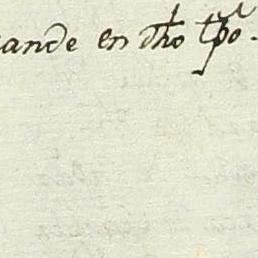 ande en dho tpo.